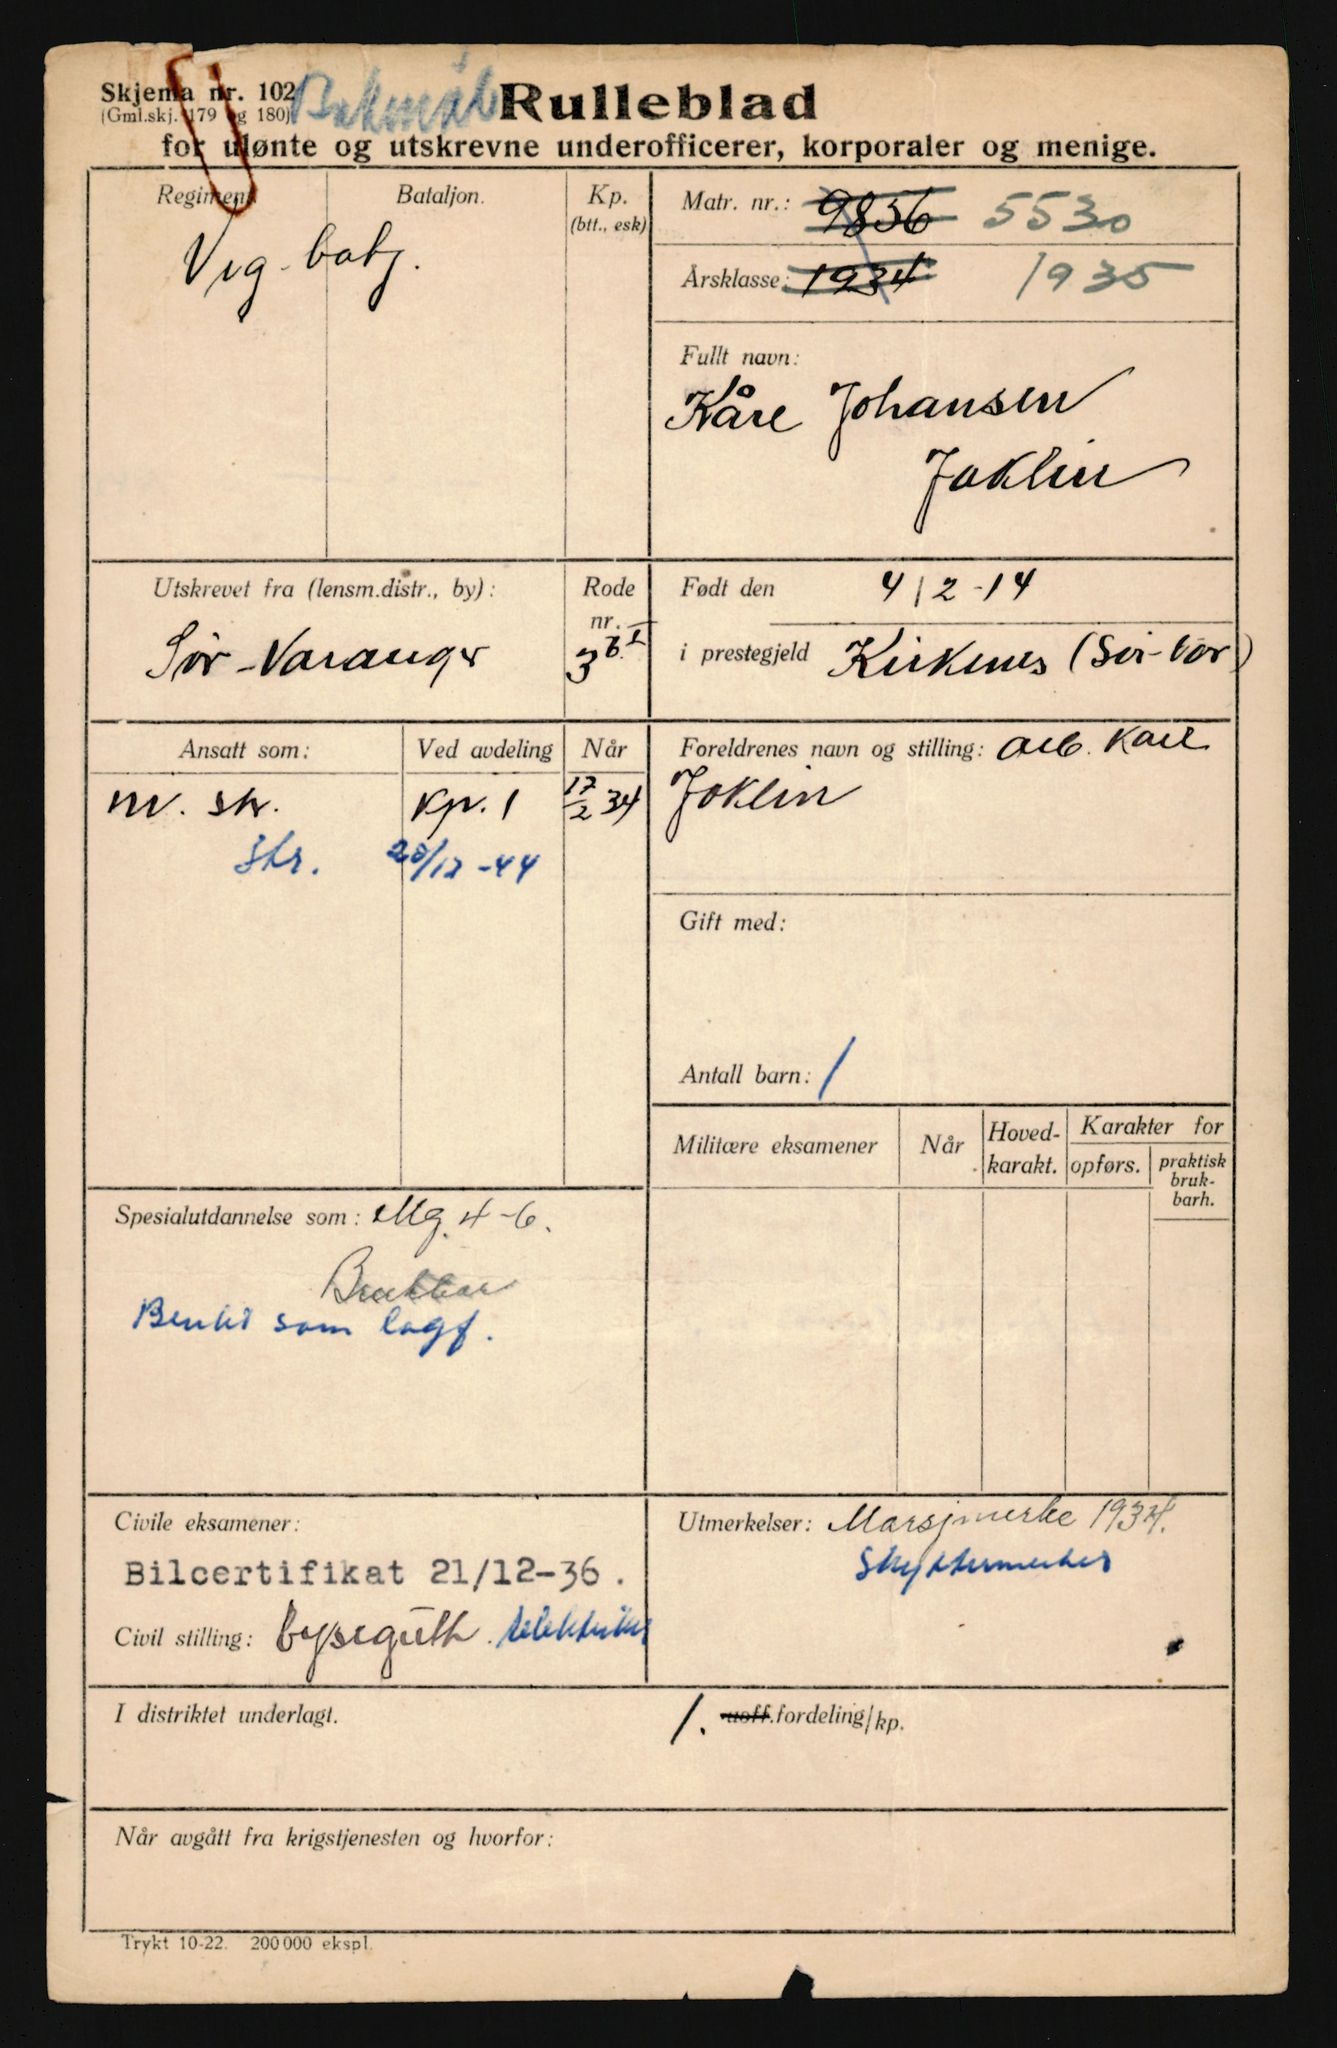 Skjema nr. 102
(Gml.skj. 179 og 180)
Bokmål
Rulleblad
for ulønte og utskrevne underofficerer, korporaler og menige.
Regiment
Bataljon.
Kp.
(btt., esk)
Vrg. batj.
Matr. nr.: 9856 5530
Årsklasse: 1934 1935
Fullt navn:
Kåre Johansen
Joklin
Utskrevet fra (lensm.distr., by):
Rode
nr.
Sør-Varanger
3 b. I
Født den 4/2-14
i prestegjeld Kirkenes (Sør-Var)
Ansatt som:
Ved avdeling
Når
nv. skr. kp. 1 17/2 34
skr. 20/12-44
Foreldrenes navn og stilling: Arb. Karl
Joklin
Gift med:
Antall barn: 1
Militære eksamener
Når
Hoved-
karakt.
Karakter for
opførs.
praktisk
bruk-
barh.
Spesialutdannelse som: Mg. 4-6.
Brukbar
Brukt som lagf.
Civile eksamener:
Bilcertifikat 21/12-36.
Civil stilling: elektriker
Utmerkelser: Marsjmerke 1934.
Skyttermerket
I distriktet underlagt.
1. uoff.fordeling/kp.
Når avgått fra krigstjenesten og hvorfor:
Trykt 10-22. 200 000 ekspl.